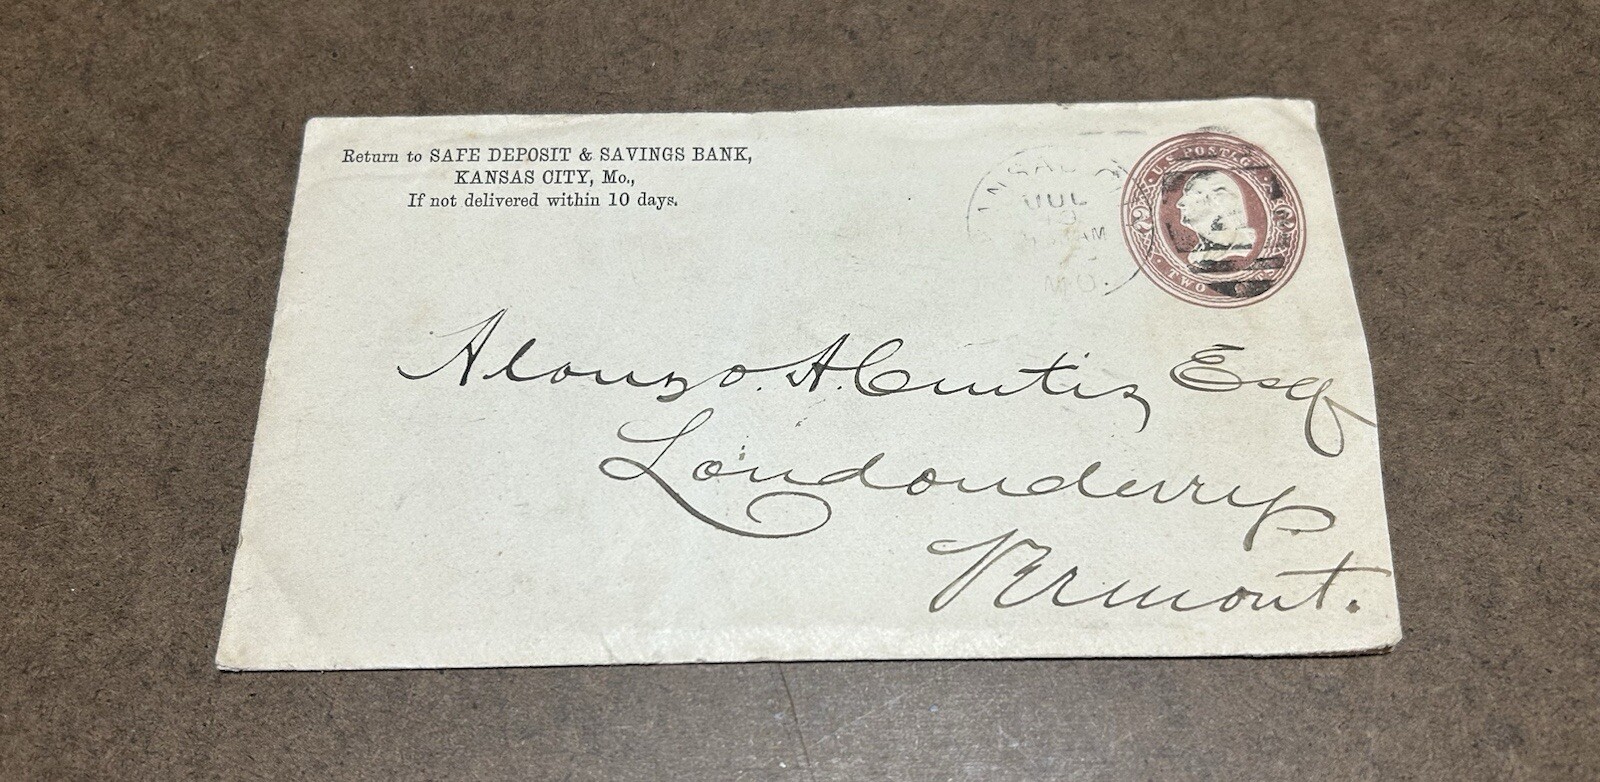 Return to SAFE DEPOSIT & SAVINGS BANK,
KANSAS CITY, Mo.,
If not delivered within 10 days.
JUL
MO.
U.S. POSTAGE
2 2
TWO
Alonzo. A. Curtis Esq
Londonderry
Vermont.